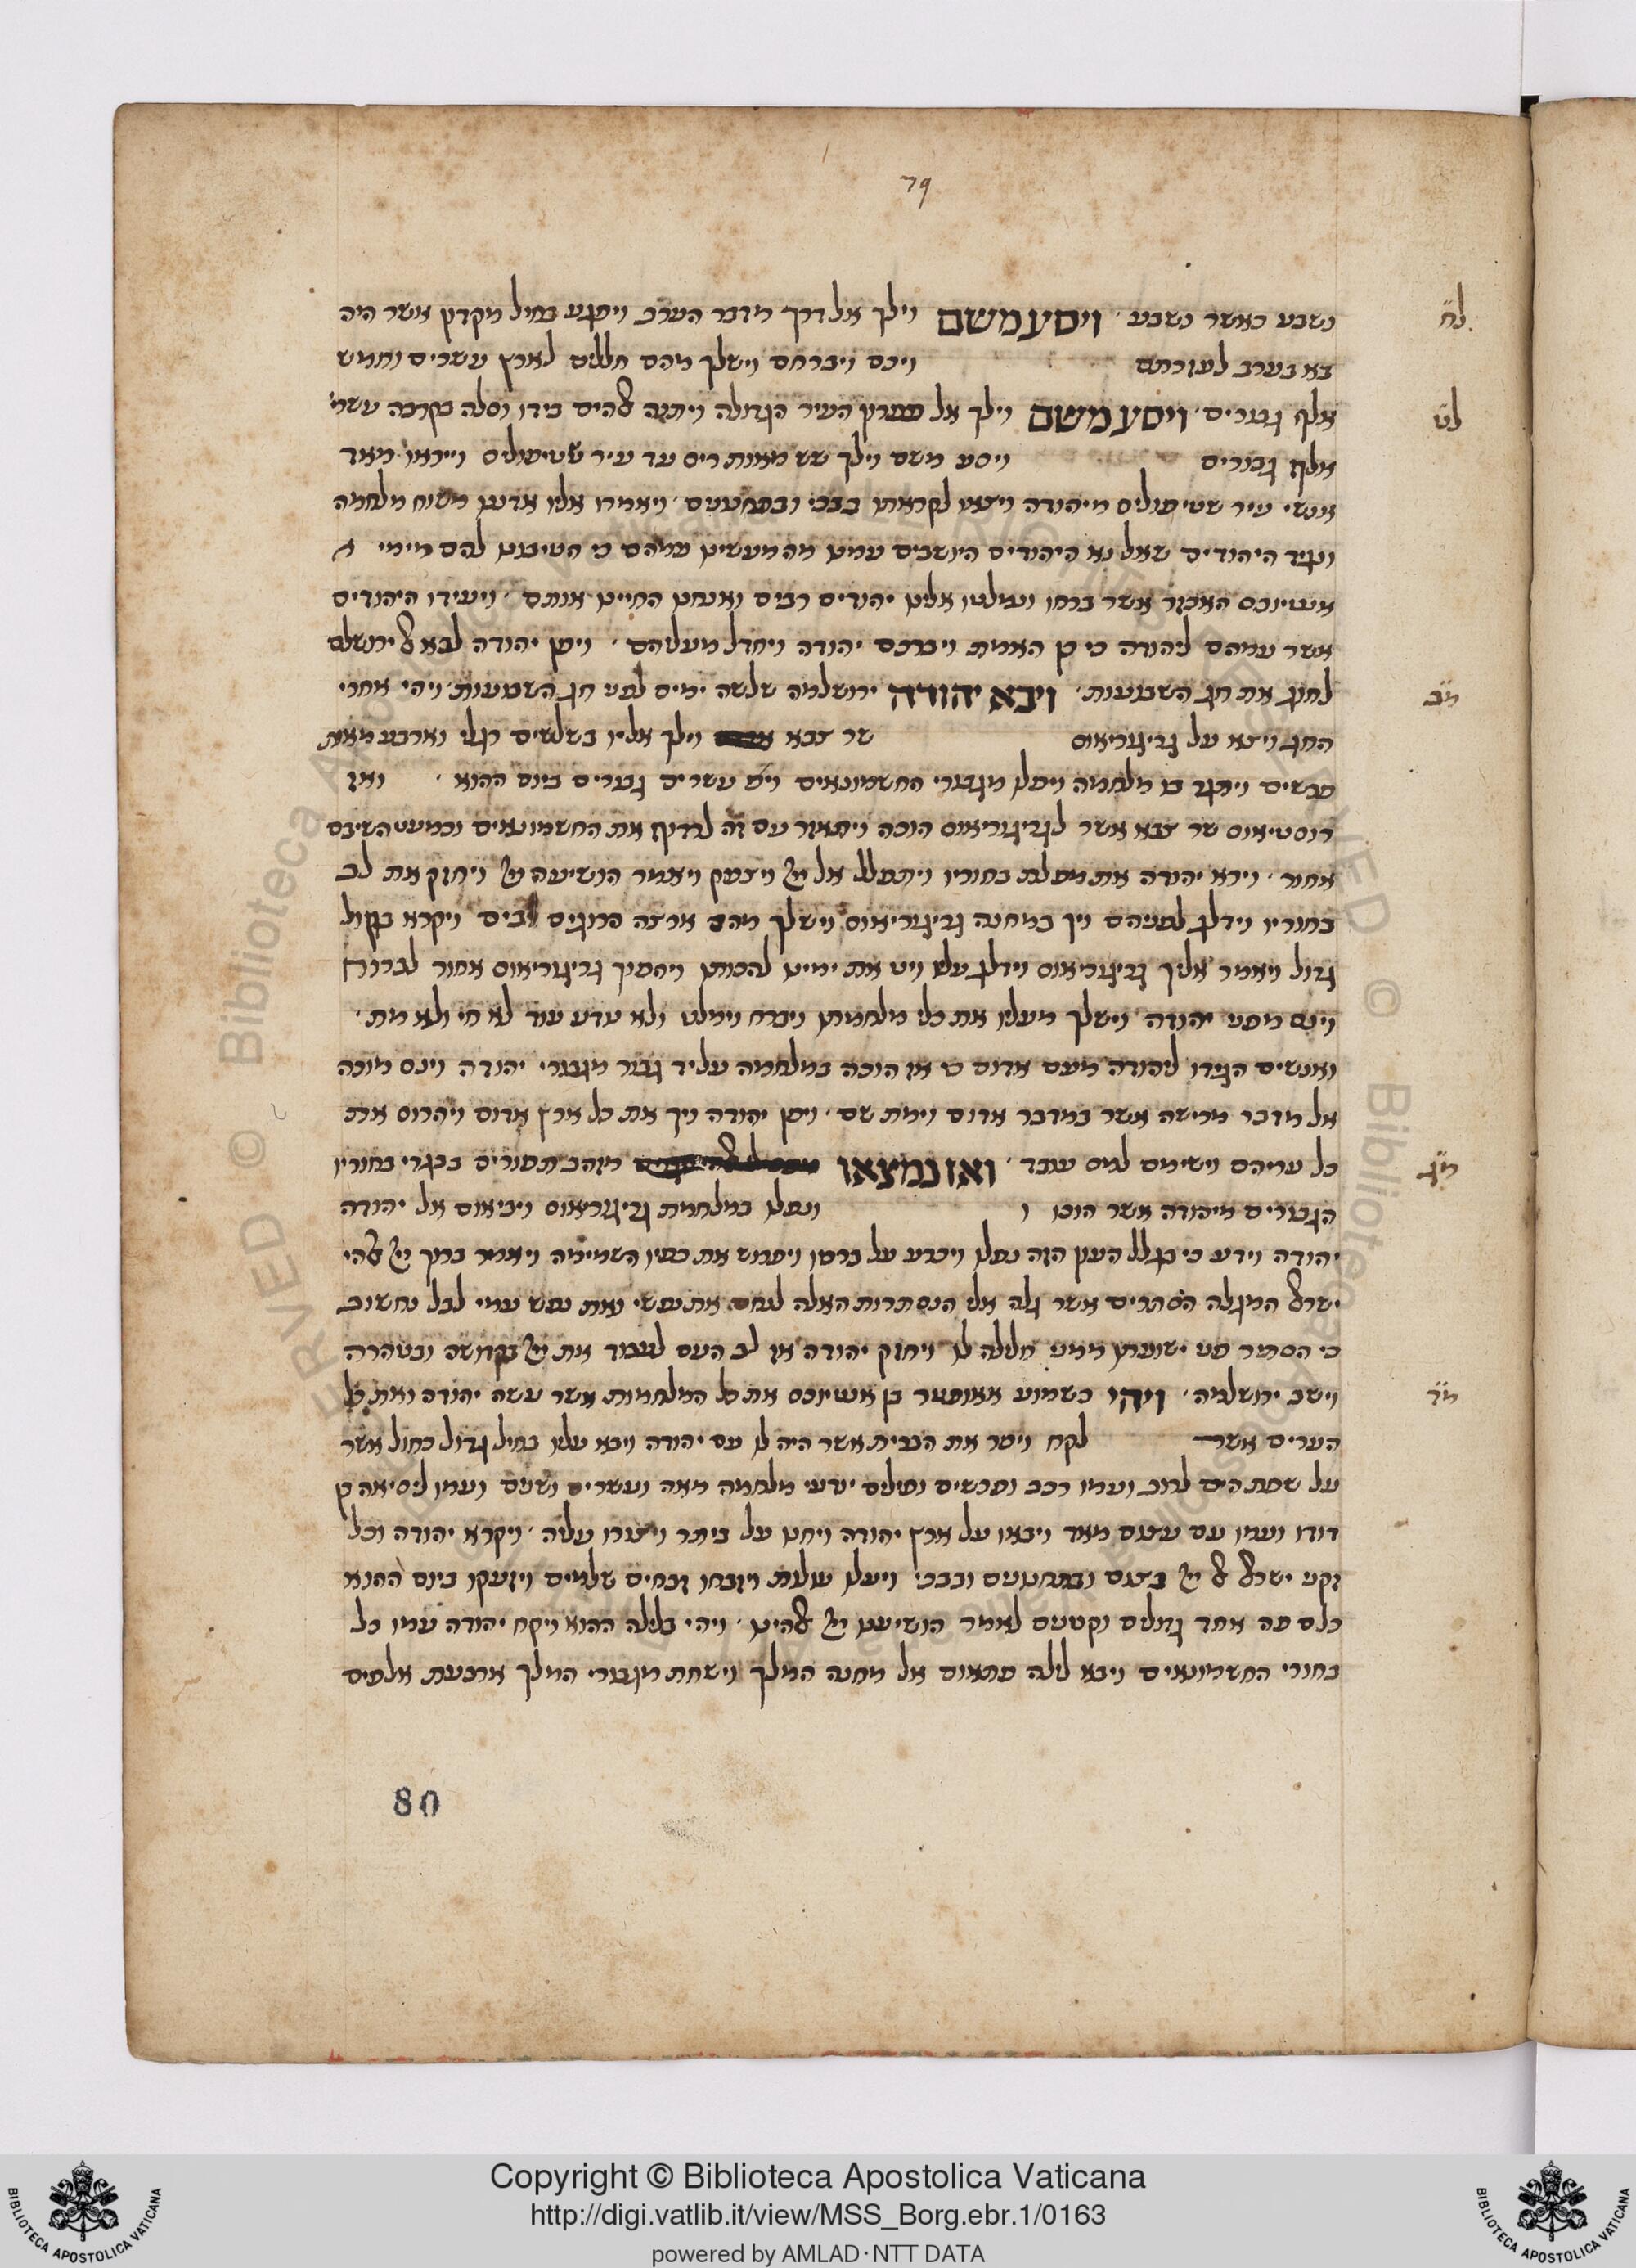 79
נשבע כאשר נשבע ׳ ויסע משם וילך אל דרך מדבר הערב ויפגע בחיל מקדם אשר היה
בא בערב לעזרתם ויכם ויברחם וישלך מהם חללים לארץ עשרים וחמש
אלף גבורים ׳ ויסע משם וילך אל העיר הגדולה ויתנה בידו
אלף גבורים ויסע משם וילך שש מאות ריס עד עיר שטיפוליס וייראו מאד
אנשי עיר שטיפוליס מיהודה ויצאו לקראתו בבכי ובתחנונים ׳ ויאמרו אליו אדונינו משוח מלחמה
ונגיד היהודים שאל נא היהודים היושבים עמנו מה מעשינו עמהם כי הטיבונו להם מימי
אנטיוכס האכזר אשר ברחו ונמלטו אלינו יהודים רבים ואנחנו החיינו אותם ׳ ויעידו היהודים
אשר עמהם ליהודה כי כן האמת ויברכם יהודה ויחדל מעליהם ׳ ויפן יהודה לבא ירושלם
לחוג את חג השבועות ׳ ויבא יהודה ירושלמה שלשה ימים לפני חג השבועות ׳ ויהי אחרי
החג ויצא על גריגוריאוס שר צבא וילך אליו בשלשים רגלי וארבע מאות
פרשים מלחמה ויפלו מגבורי החשמונאים עשרים גבורים ביום ההוא ׳ ואז
דוסטיאוס שר צבא אשר לגריגוריאוס הוכה ויתאזר עם זה לרדוף את החשמונאים וכמעט השיבם
אחור ׳ וירא יהודה את מפלת בחוריו ויתפלל אל ויצעק ויאמר הושיעה ויחזק את לב
בחוריו וידלג לפניהם ויך במחנה גריגוריאוס וישלך ארצה פרוגים רבים ויקרא בקול
גדול ויאמר אליך גריגוריאוס וידלג עליו ויט את ימינו להכותו ויהפוך גריגוריאוס אחור לברוח
וינס מפני יהודה וישלך מעליו את כלי מלחמתו ויברח וימלט ולא נודע עוד לא חי ולא מת ׳
ואנשים הגידו ליהודה מעם אדום כי אז הוכה במלחמה על יד גבור מגבורי יהודה וינס מוכה
אל מדבר מרישה אשר במדבר אדום וימת שם ׳ ויפן יהודה ויך את כל ארץ אדום ויהרוס את
כל עריהם וישימם למס עובד ׳ ואז נמצאו מזהב תפורים בבגדי בחוריו
הגבורים מיהודה אשר הוכו ו ונפלו במלחמת גריגוריאוס ויביאום אל יהודה
יהודה וידע כי בגלל העון הזה נפלו ויכרע על ברכיו ויפרוש את כפיו השמימה ויאמר ברוך
המגלה הסתרים אשר גלה הנסתרות האלה את נפשי ואת נפש עמי לבל נחשוב
כי הסתיר פני ישועתו ממנו חלילה לו ויחזק יהודה לב העם לעבוד את בקדושה ובטהרה
וישב ירושלמה ׳ ויהי כשמוע אאופטר בן אנטיוכס את כל המלחמות אשר עשה יהודה ואת כל
הערים אשר לקח ויפר את הברית אשר היה לו עם יהודה ויבא עליו בחיל גדול כחול אשר
על שפת הים לרוב ועמו רכב ופרשים ופילים יודעי מלחמה מאה ועשרים ושנים ועמו ליסיאה בן
דודו ועמו עם עצום מאד ויבאו על ארץ יהודה ויחנו על ביתר ויצורו עליה ׳ ויקרא יהודה וכל
זקני ישראל בצום ובתחנונים ובבכי ויעלו עולות ויזבחו זבחים שלמים ויזעקו ביום ההוא
כלם פה אחד גדולים וקטנים לאמר הושיענו ׳ ויהי בלילה ההוא ויקח יהודה עמו כל
בחורי החשמונאים ויבא לילה פתאום אל מחנה המלך וישחת מגבורי המלך ארבעת אלפים
לח
לט
מב
מג
מד
80
Copyright © Biblioteca Apostolica Vaticana
http://digi.vatlib.it/view/MSS_Borg.ebr.1/0163
powered by AMLAD·NTT DATA
BIBLIOTECA APOSTOLICA VATICANA
BIBLIOTECA APOSTOLICA VATICANA